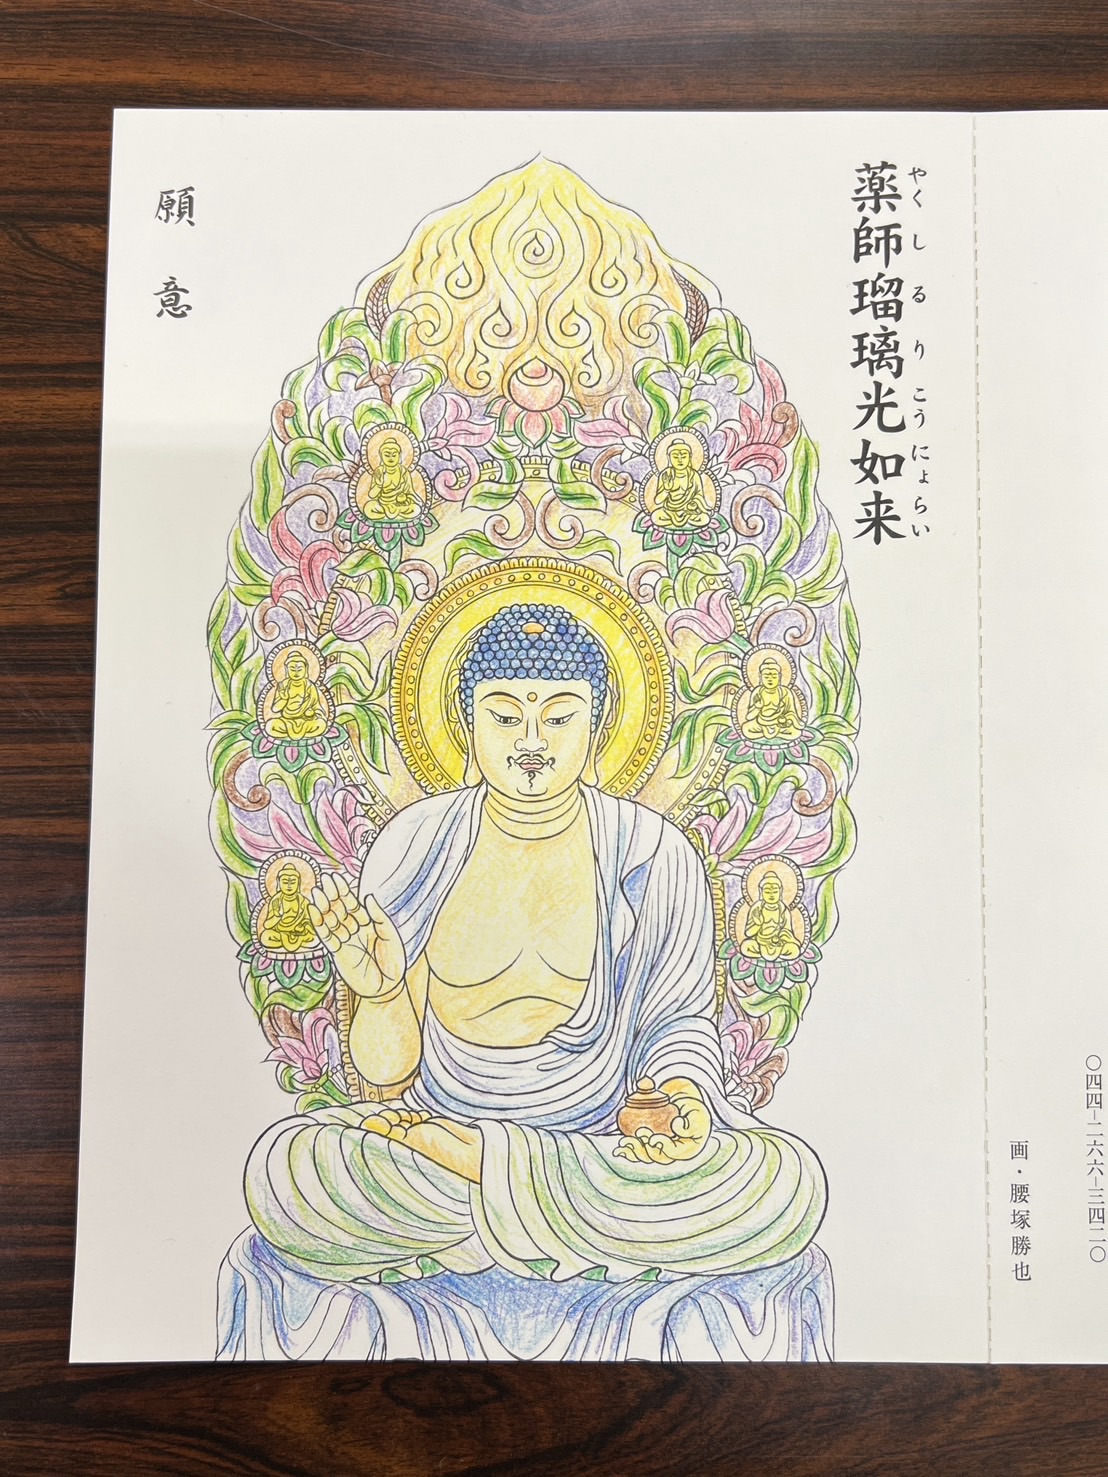 〇四四-二六六-三四二〇
画・腰塚勝也
薬師瑠璃光如来
やくしるりこうにょらい
願意